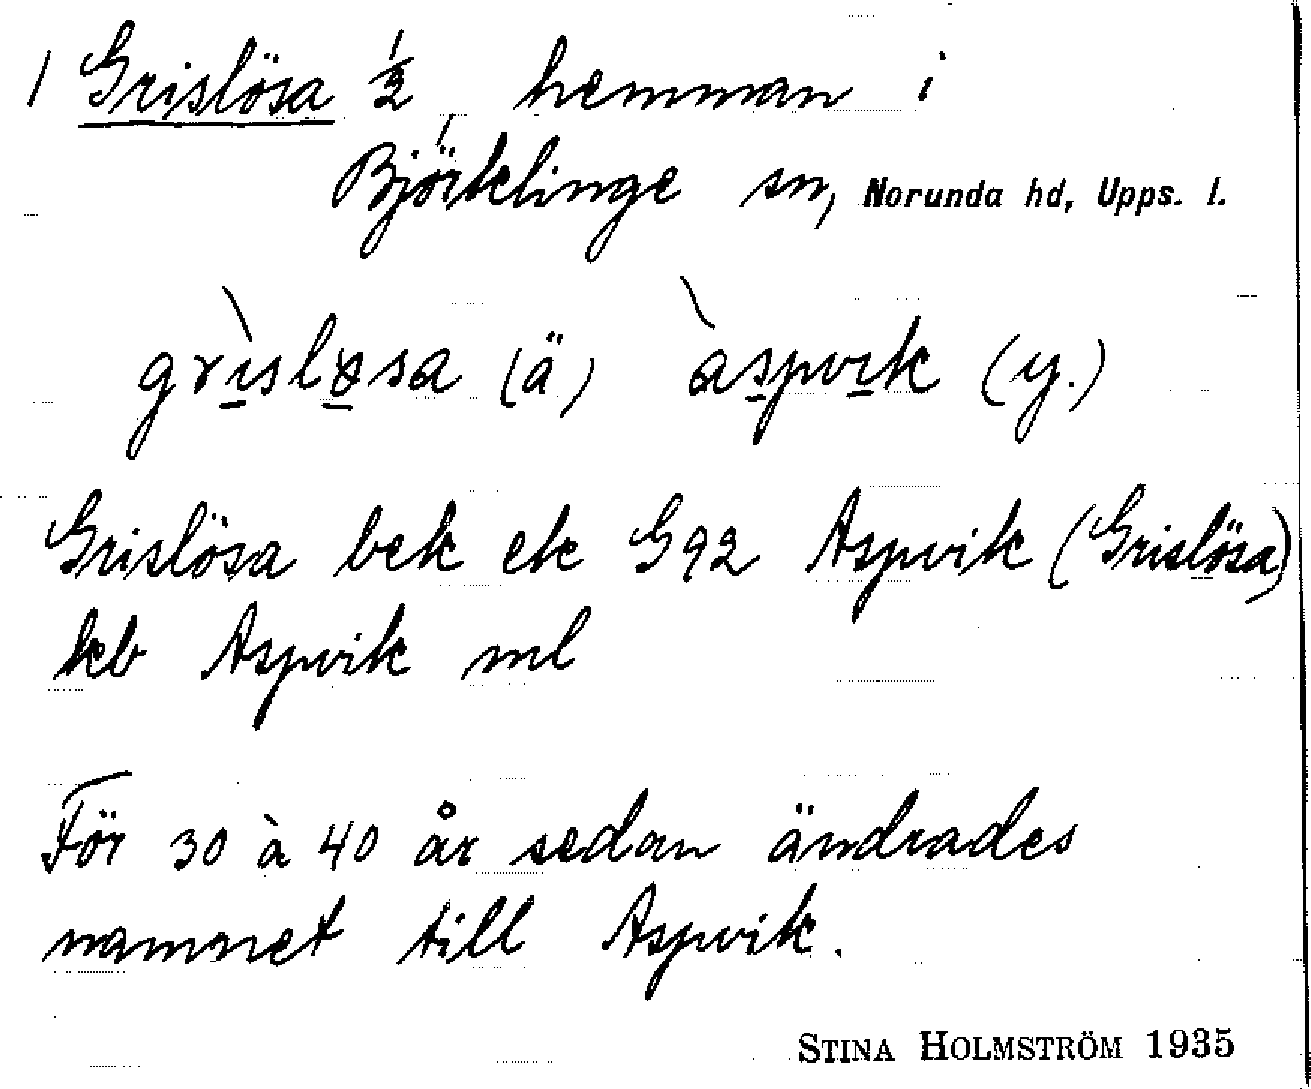 / Grislösa 1/2 hemman i
Björklinge sn, Norunda hd, Upps. l.
grìsløsa (ä) àspvik (y.)
Grislösa bek ek G92 Aspvik (Grislösa)
kb Aspvik ml
För 30 à 40 år sedan ändrades
namnet till Aspvik.
STINA HOLMSTRÖM 1935